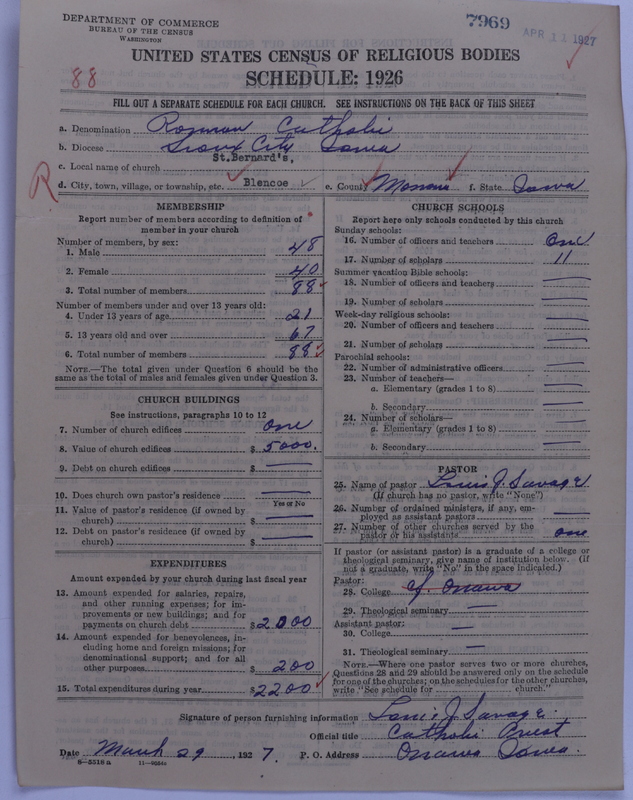 DEPARTMENT OF COMMERCE
BUREAU OF THE CENSUS
WASHINGTON
7969
APR 11 1927
UNITED STATES CENSUS OF RELIGIOUS BODIES
SCHEDULE: 1926
88
FILL OUT A SEPARATE SCHEDULE FOR EACH CHURCH. SEE INSTRUCTIONS ON THE BACK OF THIS SHEET
a. Denomination Roman Catholic
b. Diocese Sioux City Iowa
c. Local name of church St.Bernard's,
R
d. City, town, village, or township, etc. Blencoe e. County Monona f. State Iowa
MEMBERSHIP
Report number of members according to definition of member in your church
Number of members, by sex:
1. Male 48
2. Female 40
3. Total number of members 88
Number of members under and over 13 years old:
4. Under 13 years of age 21
5. 13 years old and over 67
6. Total number of members 88
NOTE.—The total given under Question 6 should be the same as the total of males and females given under Question 3.
CHURCH BUILDINGS
See instructions, paragraphs 10 to 12
7. Number of church edifices one
8. Value of church edifices $ 5000.
9. Debt on church edifices $ —
10. Does church own pastor's residence —
Yes or No
11. Value of pastor's residence (if owned by church) $ —
12. Debt on pastor's residence (if owned by church) $ —
EXPENDITURES
Amount expended by your church during last fiscal year
13. Amount expended for salaries, repairs, and other running expenses; for improvements or new buildings; and for payments on church debt $ 2000
14. Amount expended for benevolences, including home and foreign missions; for denominational support; and for all other purposes $ 200
15. Total expenditures during year $ 2200
CHURCH SCHOOLS
Report here only schools conducted by this church
Sunday schools:
16. Number of officers and teachers one
17. Number of scholars 11
Summer vacation Bible schools:
18. Number of officers and teachers —
19. Number of scholars —
Week-day religious schools:
20. Number of officers and teachers —
21. Number of scholars —
Parochial schools:
22. Number of administrative officers —
23. Number of teachers—
a. Elementary (grades 1 to 8) —
b. Secondary —
24. Number of scholars—
a. Elementary (grades 1 to 8) —
b. Secondary —
PASTOR
25. Name of pastor Louis J. Savage
(If church has no pastor, write "None")
26. Number of ordained ministers, if any, employed as assistant pastors —
27. Number of other churches served by the pastor or his assistants one
If pastor (or assistant pastor) is a graduate of a college or theological seminary, give name of institution below. (If not a graduate, write "No" in the space indicated.)
Pastor:
28. College Onawa
29. Theological seminary —
Assistant pastor:
30. College —
31. Theological seminary —
NOTE.—Where one pastor serves two or more churches, Questions 28 and 29 should be answered only on the schedule for one of the churches; on the schedules for the other churches, write "See schedule for church."
Signature of person furnishing information Louis J. Savage
Official title Catholic Priest
Date March 29, 1927. P. O. Address Onawa Iowa.
8—5516 a